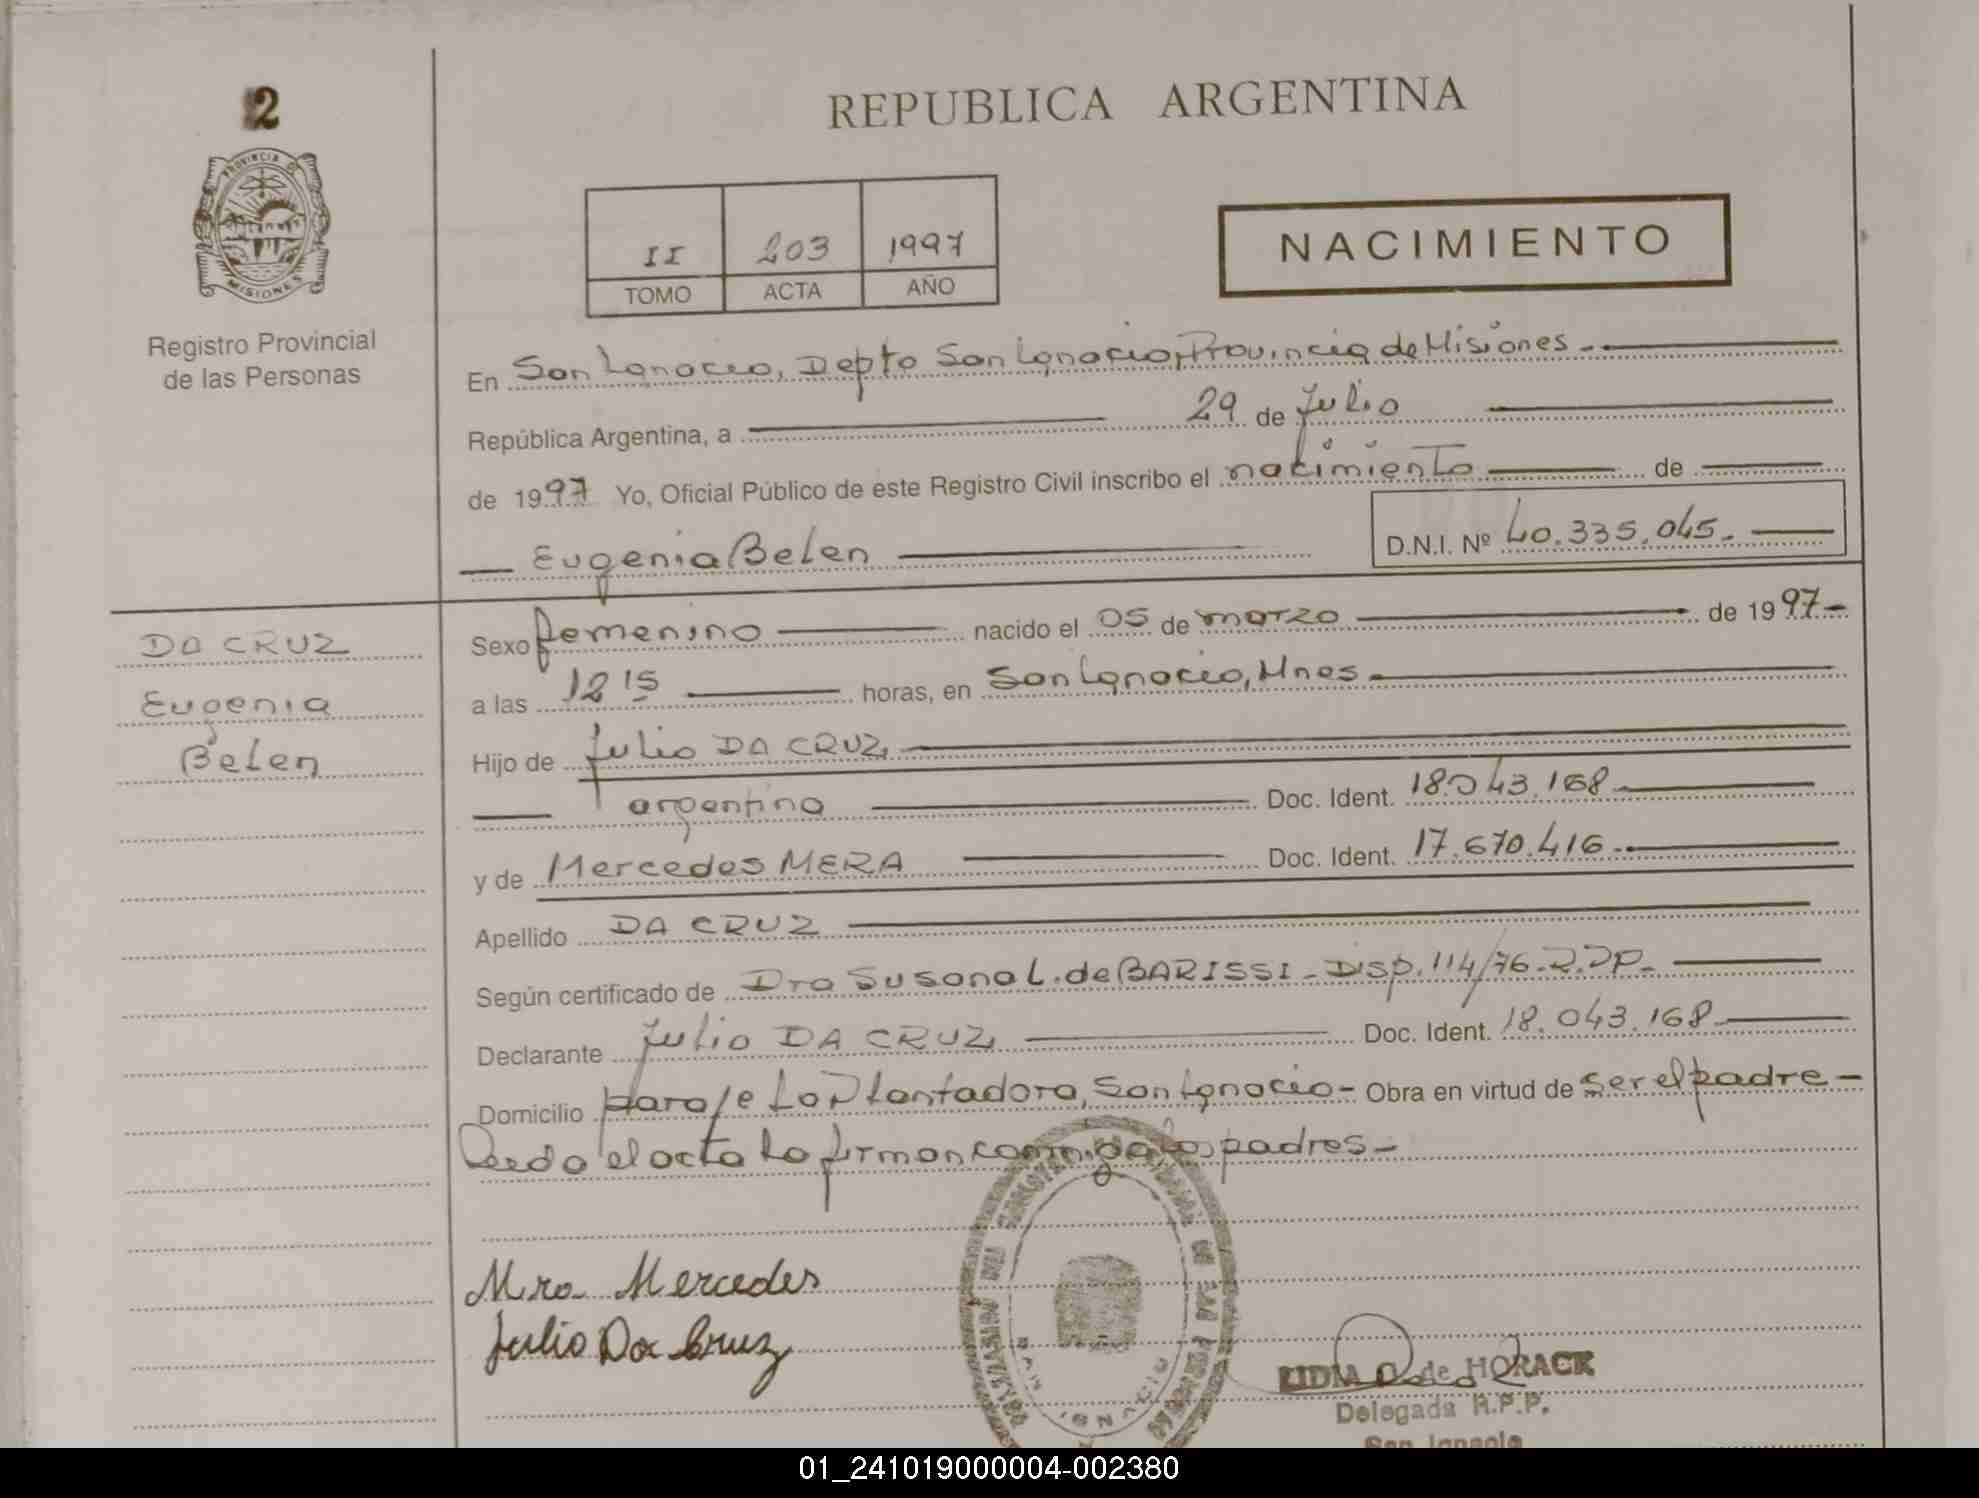 2
PROVINCIA DE
MISIONES
Registro Provincial
de las Personas
REPUBLICA ARGENTINA
II 203 1997
TOMO ACTA AÑO
NACIMIENTO
En San Ignacio, Depto San Ignacio, Provincia de Misiones -
República Argentina, a 29 de Julio
de 1997 Yo, Oficial Público de este Registro Civil inscribo el nacimiento de
Eugenia Belen D.N.I. Nº 40.335.045.-
DA CRUZ
Eugenia
Belen
Sexo femenino nacido el 05 de marzo de 1997-
a las 12 15 horas, en San Ignacio, Mnes-
Hijo de Julio DA CRUZ,
argentino Doc. Ident. 18.043.168-
y de Mercedes MERA Doc. Ident. 17.670.416-
Apellido DA CRUZ
Según certificado de Dra Susana L. de BARISSI - Disp. 114/76-R.P.P.-
Declarante Julio DA CRUZ, Doc. Ident. 18.043.168-
Domicilio paraje La Plantadora, San Ignacio - Obra en virtud de ser el padre -
Leida el acta la firman conmigo, los padres -
Mra. Mercedes
Julio Da Cruz
SAN IGNACIO
LIDIA O. de HORACK
Delegada R.P.P.
San Ignacio
01_241019000004-002380